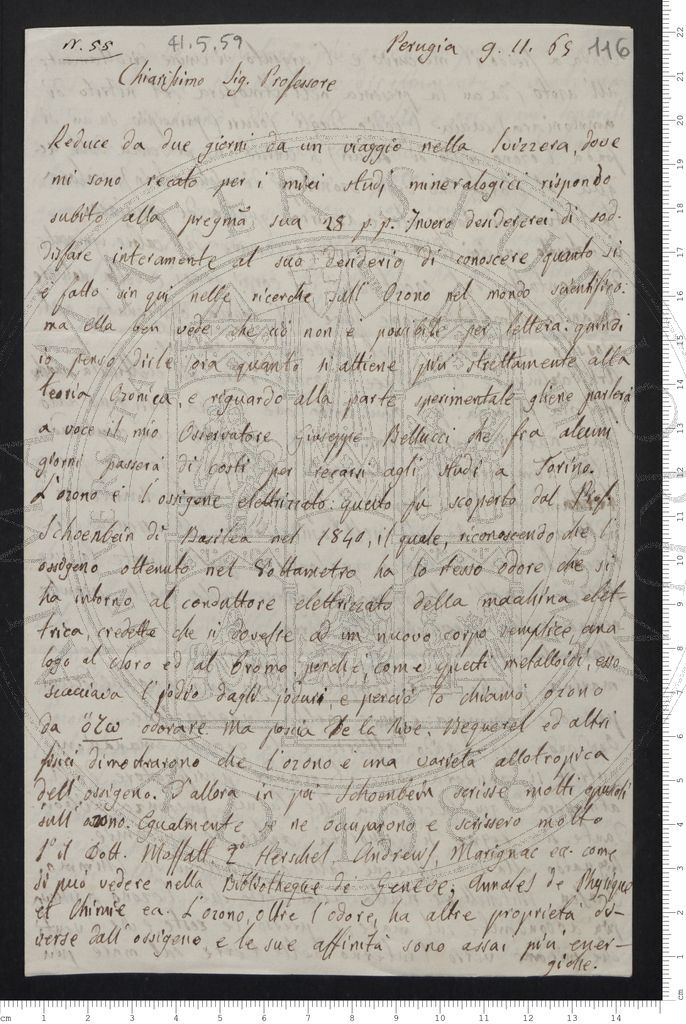 N. 55 41.5.59 Perugia 9. 11. 65 116
Chiarissimo Sig. Professore
Reduce da due giorni da un viaggio nella Svizzera, dove
mi sono recato per i miei studi mineralogici rispondo
subito alla pregma sua 28 p. p. Invero desidererei di sod-
disfare interamente al suo desiderio di conoscere quanto si
è fatto sin qui nelle ricerche sull' Ozono nel mondo scientifico:
ma ella ben vede che ciò non è possibile per lettera: quindi
io penso dirle ora quanto si attiene più strettamente alla
teoria Ozonica, e riguardo alla parte sperimentale gliene parlerà
a voce il mio Osservatore Giuseppe Bellucci che fra alcuni
giorni passerà di costì per recarsi agli studi a Torino.
L'ozono è l'ossigene elettrizzato: questo fu scoperto dal Prof.
Schoenbein di Basilea nel 1840, il quale, riconoscendo che l'
ossigeno ottenuto nel Voltametro ha lo stesso odore che si
ha intorno al conduttore elettrizzato della macchina elet-
trica, credette che si dovesse ad un nuovo corpo semplice, ana
logo al cloro ed al bromo perchè, come questi metalloidi, esso
scacciava l'jodio dagli joduri, e perciò lo chiamò ozono
da ὄζω odorare. Ma poscia De la Rive. Bequerel ed altri
fisici dimostrarono che l'ozono è una varietà allotropica
dell'ossigeno. D'allora in poi Schoenbein scrisse molti
sull' ozono. Egualmente se ne occuparono e scrissero molto
1° il Dott. Moffatt. 2° Herschel, Andrews, Marignac ec. come
si può vedere nella Bibliotheque de Genéve, Annales de Physique
et Chimie ec. L'ozono, oltre l'odore, ha altre proprietà di-
verse dall'ossigeno e le sue affinità sono assai più ener-
giche.